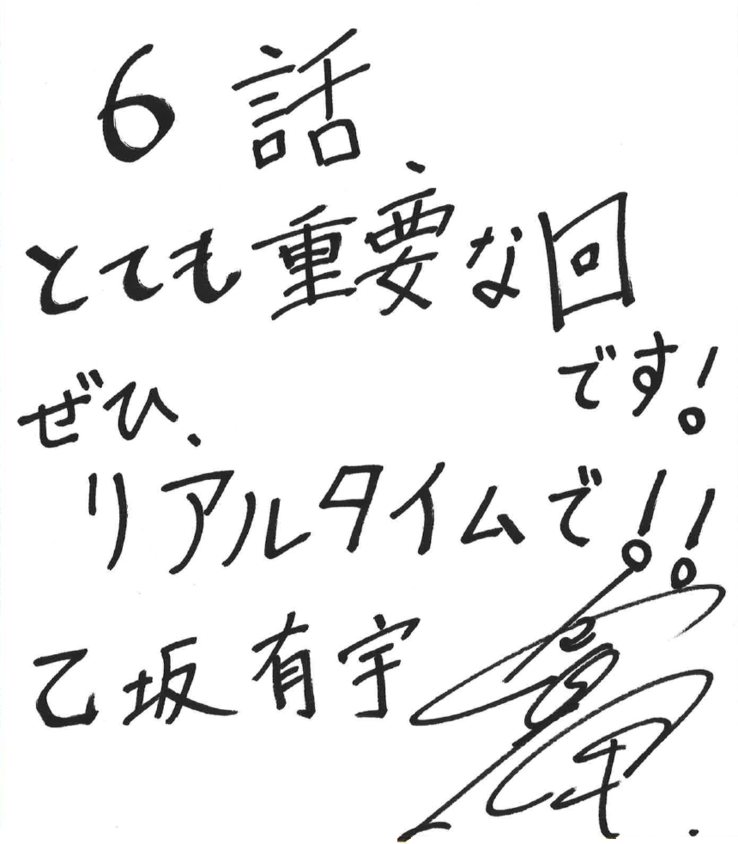 6話
とても重要な回
です!
ぜひ、
リアルタイムで!!
乙坂有宇